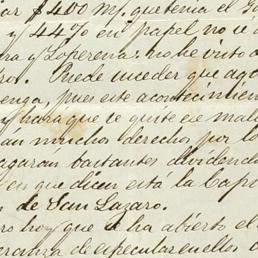 $400 m/. que tenia el
y 44% en papel no se
ra y Loperena: no he visto
ro. Puede suceder que aq
enga, pues este acontecimien
y hará que se quite ese mal
án muchos derechos, por lo
agaran bastantes dividendo
en que dicen está la Capi
de San Lázaro.
ro hoy que se ha abierto el
eranza de especular en ellos